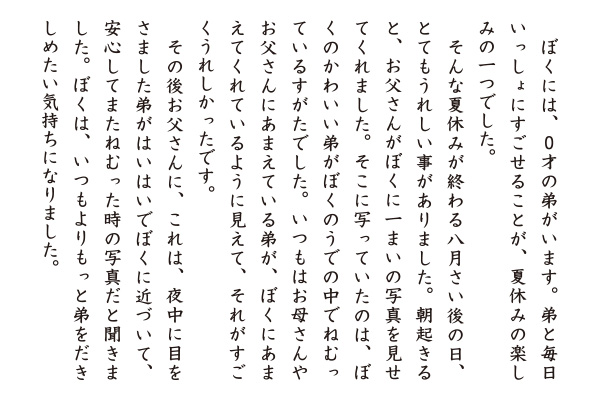 ぼくには、０才の弟がいます。弟と毎日
いっしょにすごせることが、夏休みの楽し
みの一つでした。
　そんな夏休みが終わる八月さい後の日、
とてもうれしい事がありました。朝起きる
と、お父さんがぼくに一まいの写真を見せ
てくれました。そこに写っていたのは、ぼ
くのかわいい弟がぼくのうでの中でねむっ
ているすがたでした。いつもはお母さんや
お父さんにあまえている弟が、ぼくにあま
えてくれているように見えて、それがすご
くうれしかったです。
　その後お父さんに、これは、夜中に目を
さました弟がはいはいでぼくに近づいて、
安心してまたねむった時の写真だと聞きま
した。ぼくは、いつもよりもっと弟をだき
しめたい気持ちになりました。